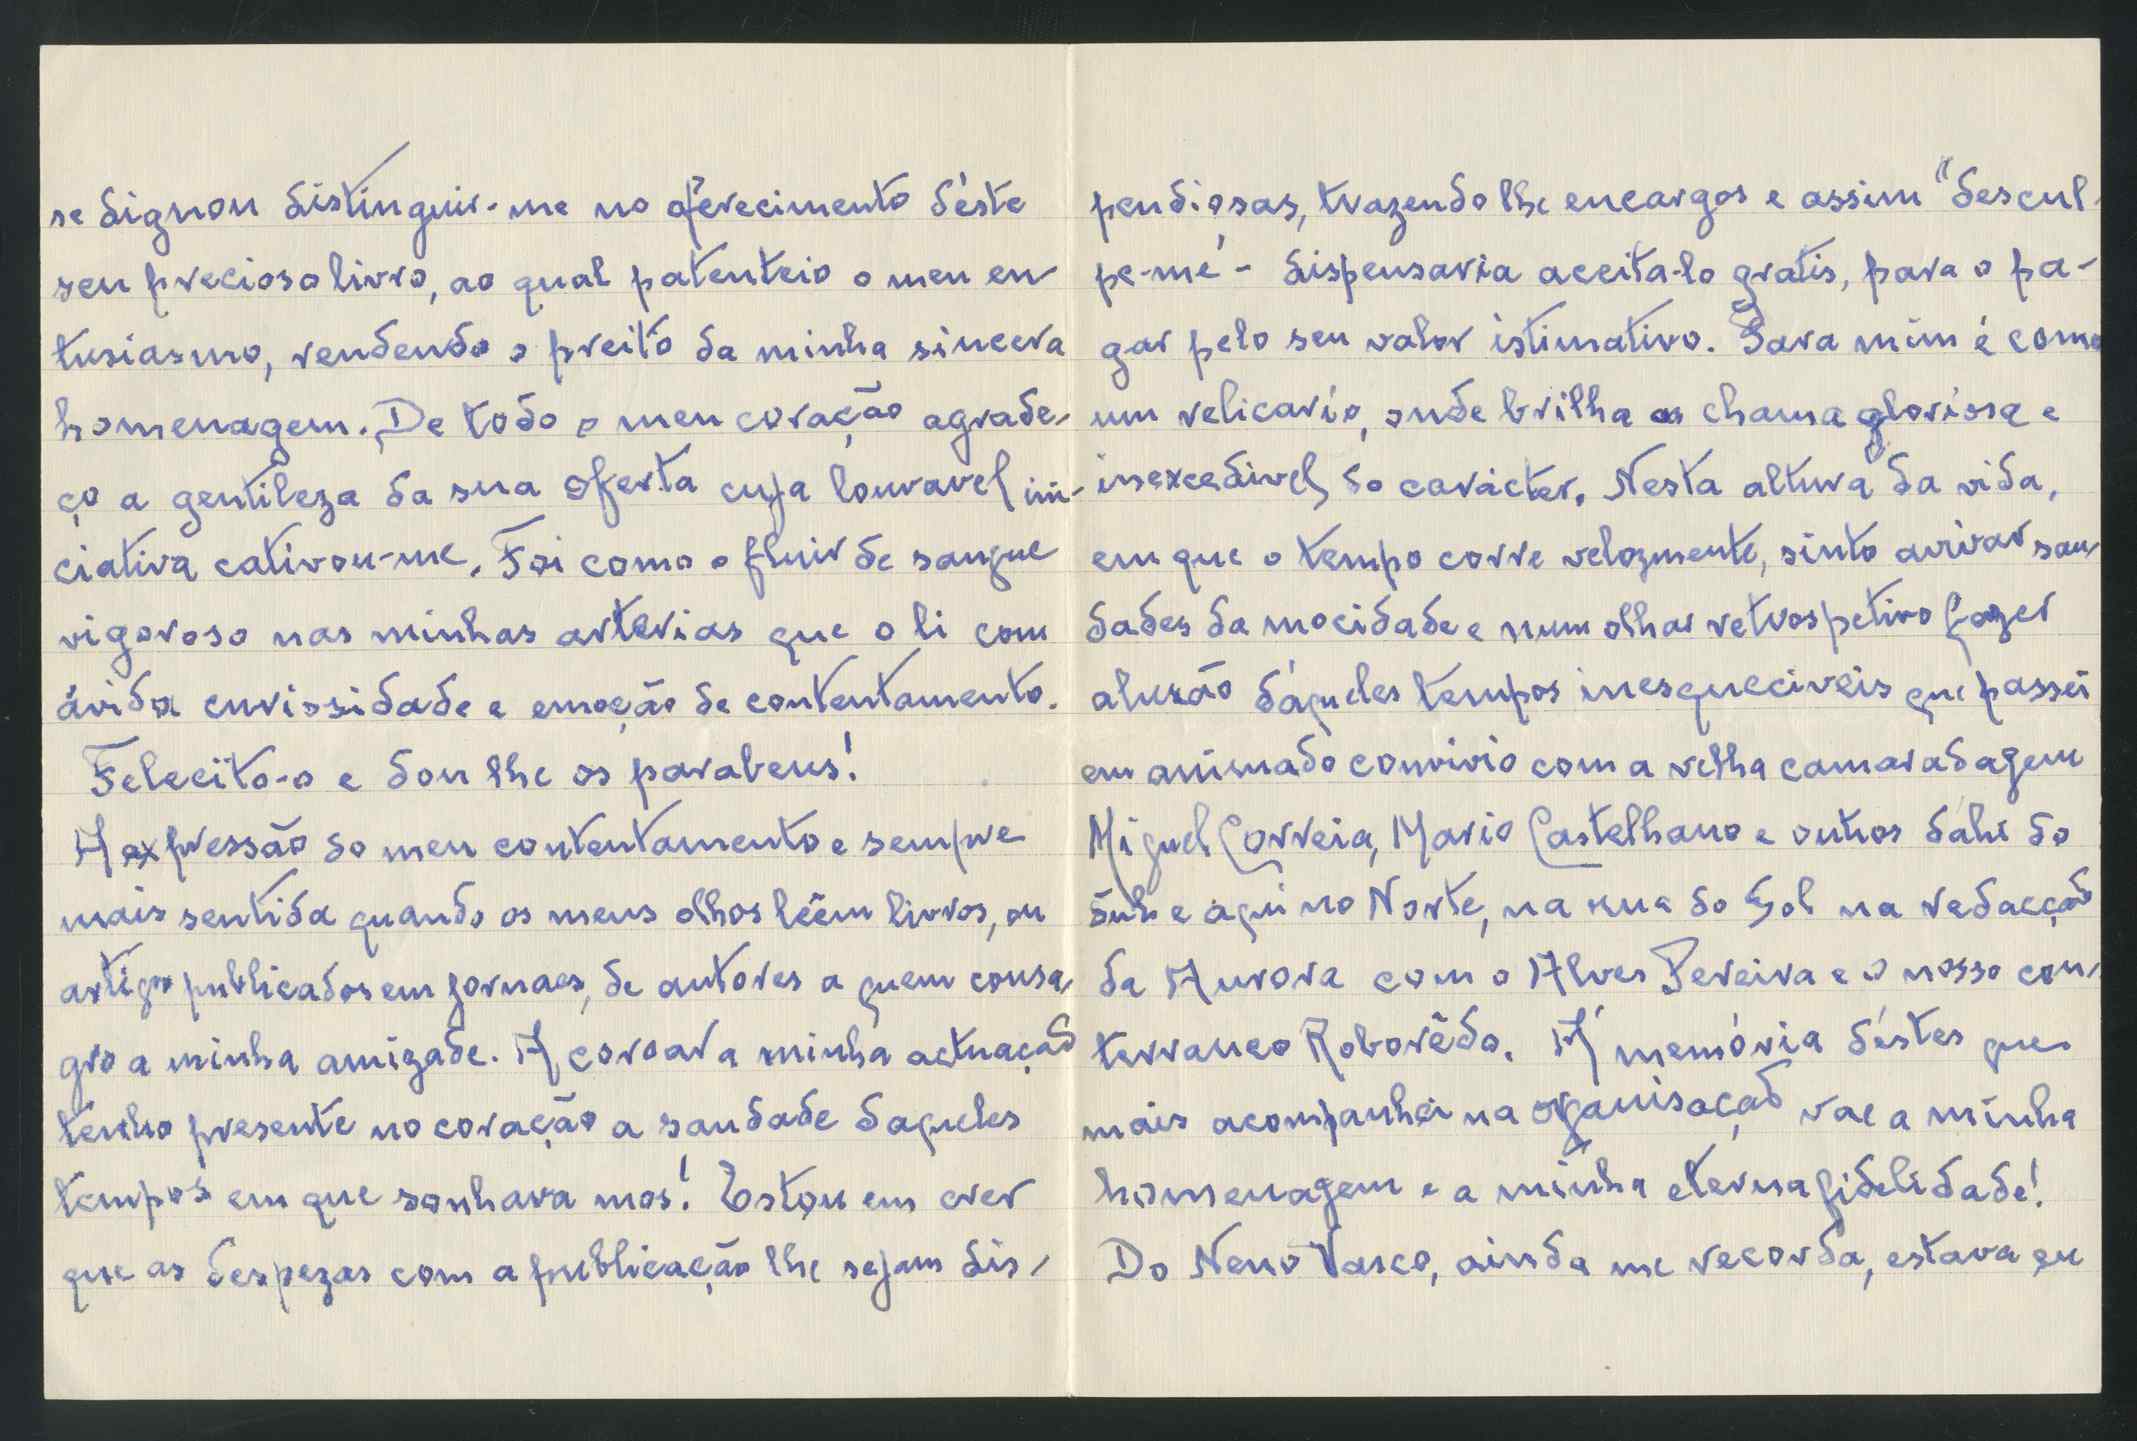 se dignou distinguir-me no oferecimento d'éste
seu precioso livro, ao qual patenteio o meu en-
tusiasmo, rendendo o preito da minha sincera
homenagem. De todo o meu coração agrade-
ço a gentileza da sua oferta cuja louvavel ini-
ciativa cativou-me. Foi como o fluir de sangue
vigoroso nas minhas arterias que o li com
ávida curiosidade e emoção de contentamento.
Felecito-o e dou lhe os parabens!
A expressão do meu contentamento e sempre
mais sentida quando os meus olhos lêem livros, ou
artigos publicados em jornaes, de autores a quem consa-
gro a minha amizade. A coroar a minha actuação
tenho presente no coração a saudade daqueles
tempos em que sonhava mos! Estou em crer
que as despezas com a publicação lhe sejam dis-
pendiosas, trazendo lhe encargos e assim "descul-
pe-me" - dispensaria aceita-lo gratis, para o pa-
gar pelo seu valor istimativo. Para mim é como
um relicario, onde brilha a chama gloriosa e
inexcedivel do carácter. Nesta altura da vida,
em que o tempo corre velozmente, sinto avivar sau-
dades da mocidade e num olhar retrospetivo fazer
alusão dáqueles tempos inesqueciveis que passei
em animado convivio com a velha camaradagem
Miguel Correia, Mario Castelhano e outros dáhi do
Sul e aqui no Norte, na rua do Sol na redacção
da Aurora com o Alves Pereira e o nosso con-
terraneo Roborêdo. Á memória déstes que
mais acompanhei na organisação vae a minha
homenagem e a minha eterna fidelidade!
Do Neno Vasco, ainda me recorda, estava eu